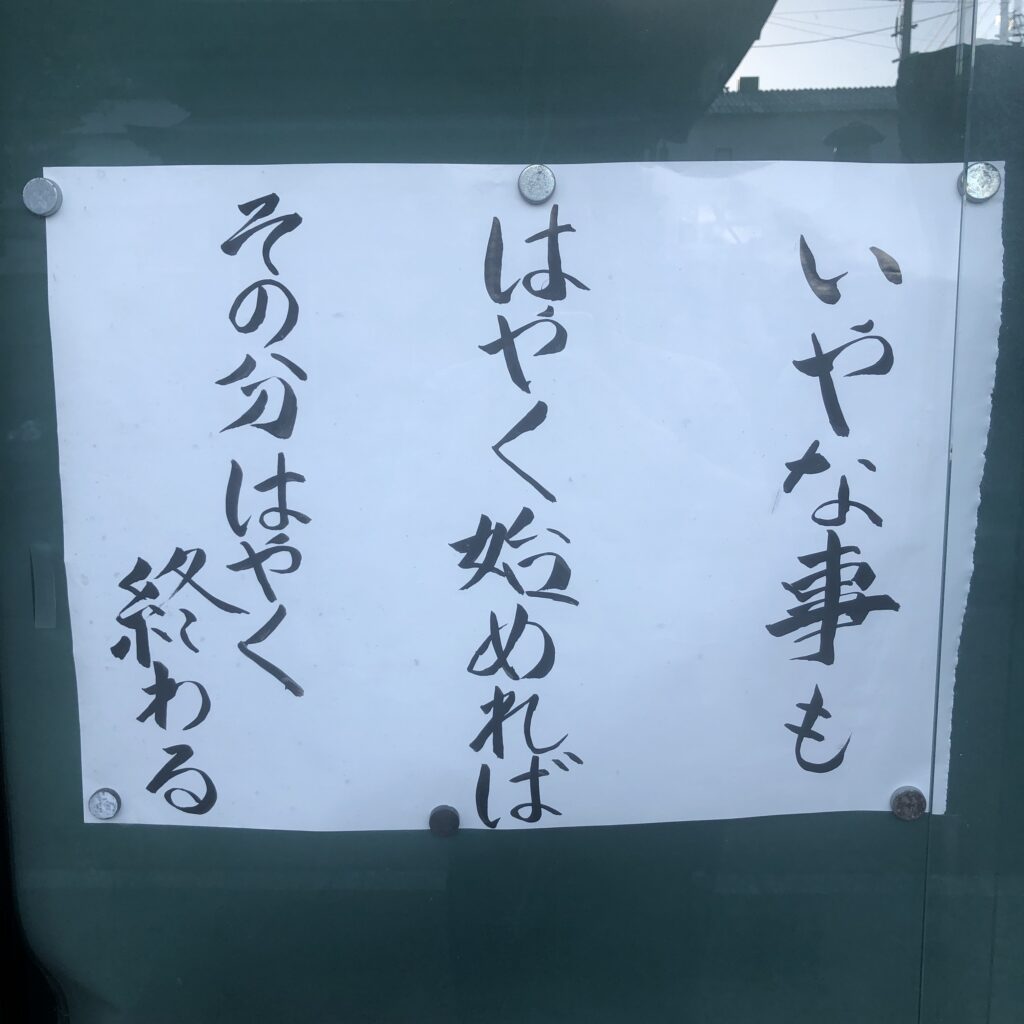 いやな事も
はやく始めれば
その分はやく
終わる